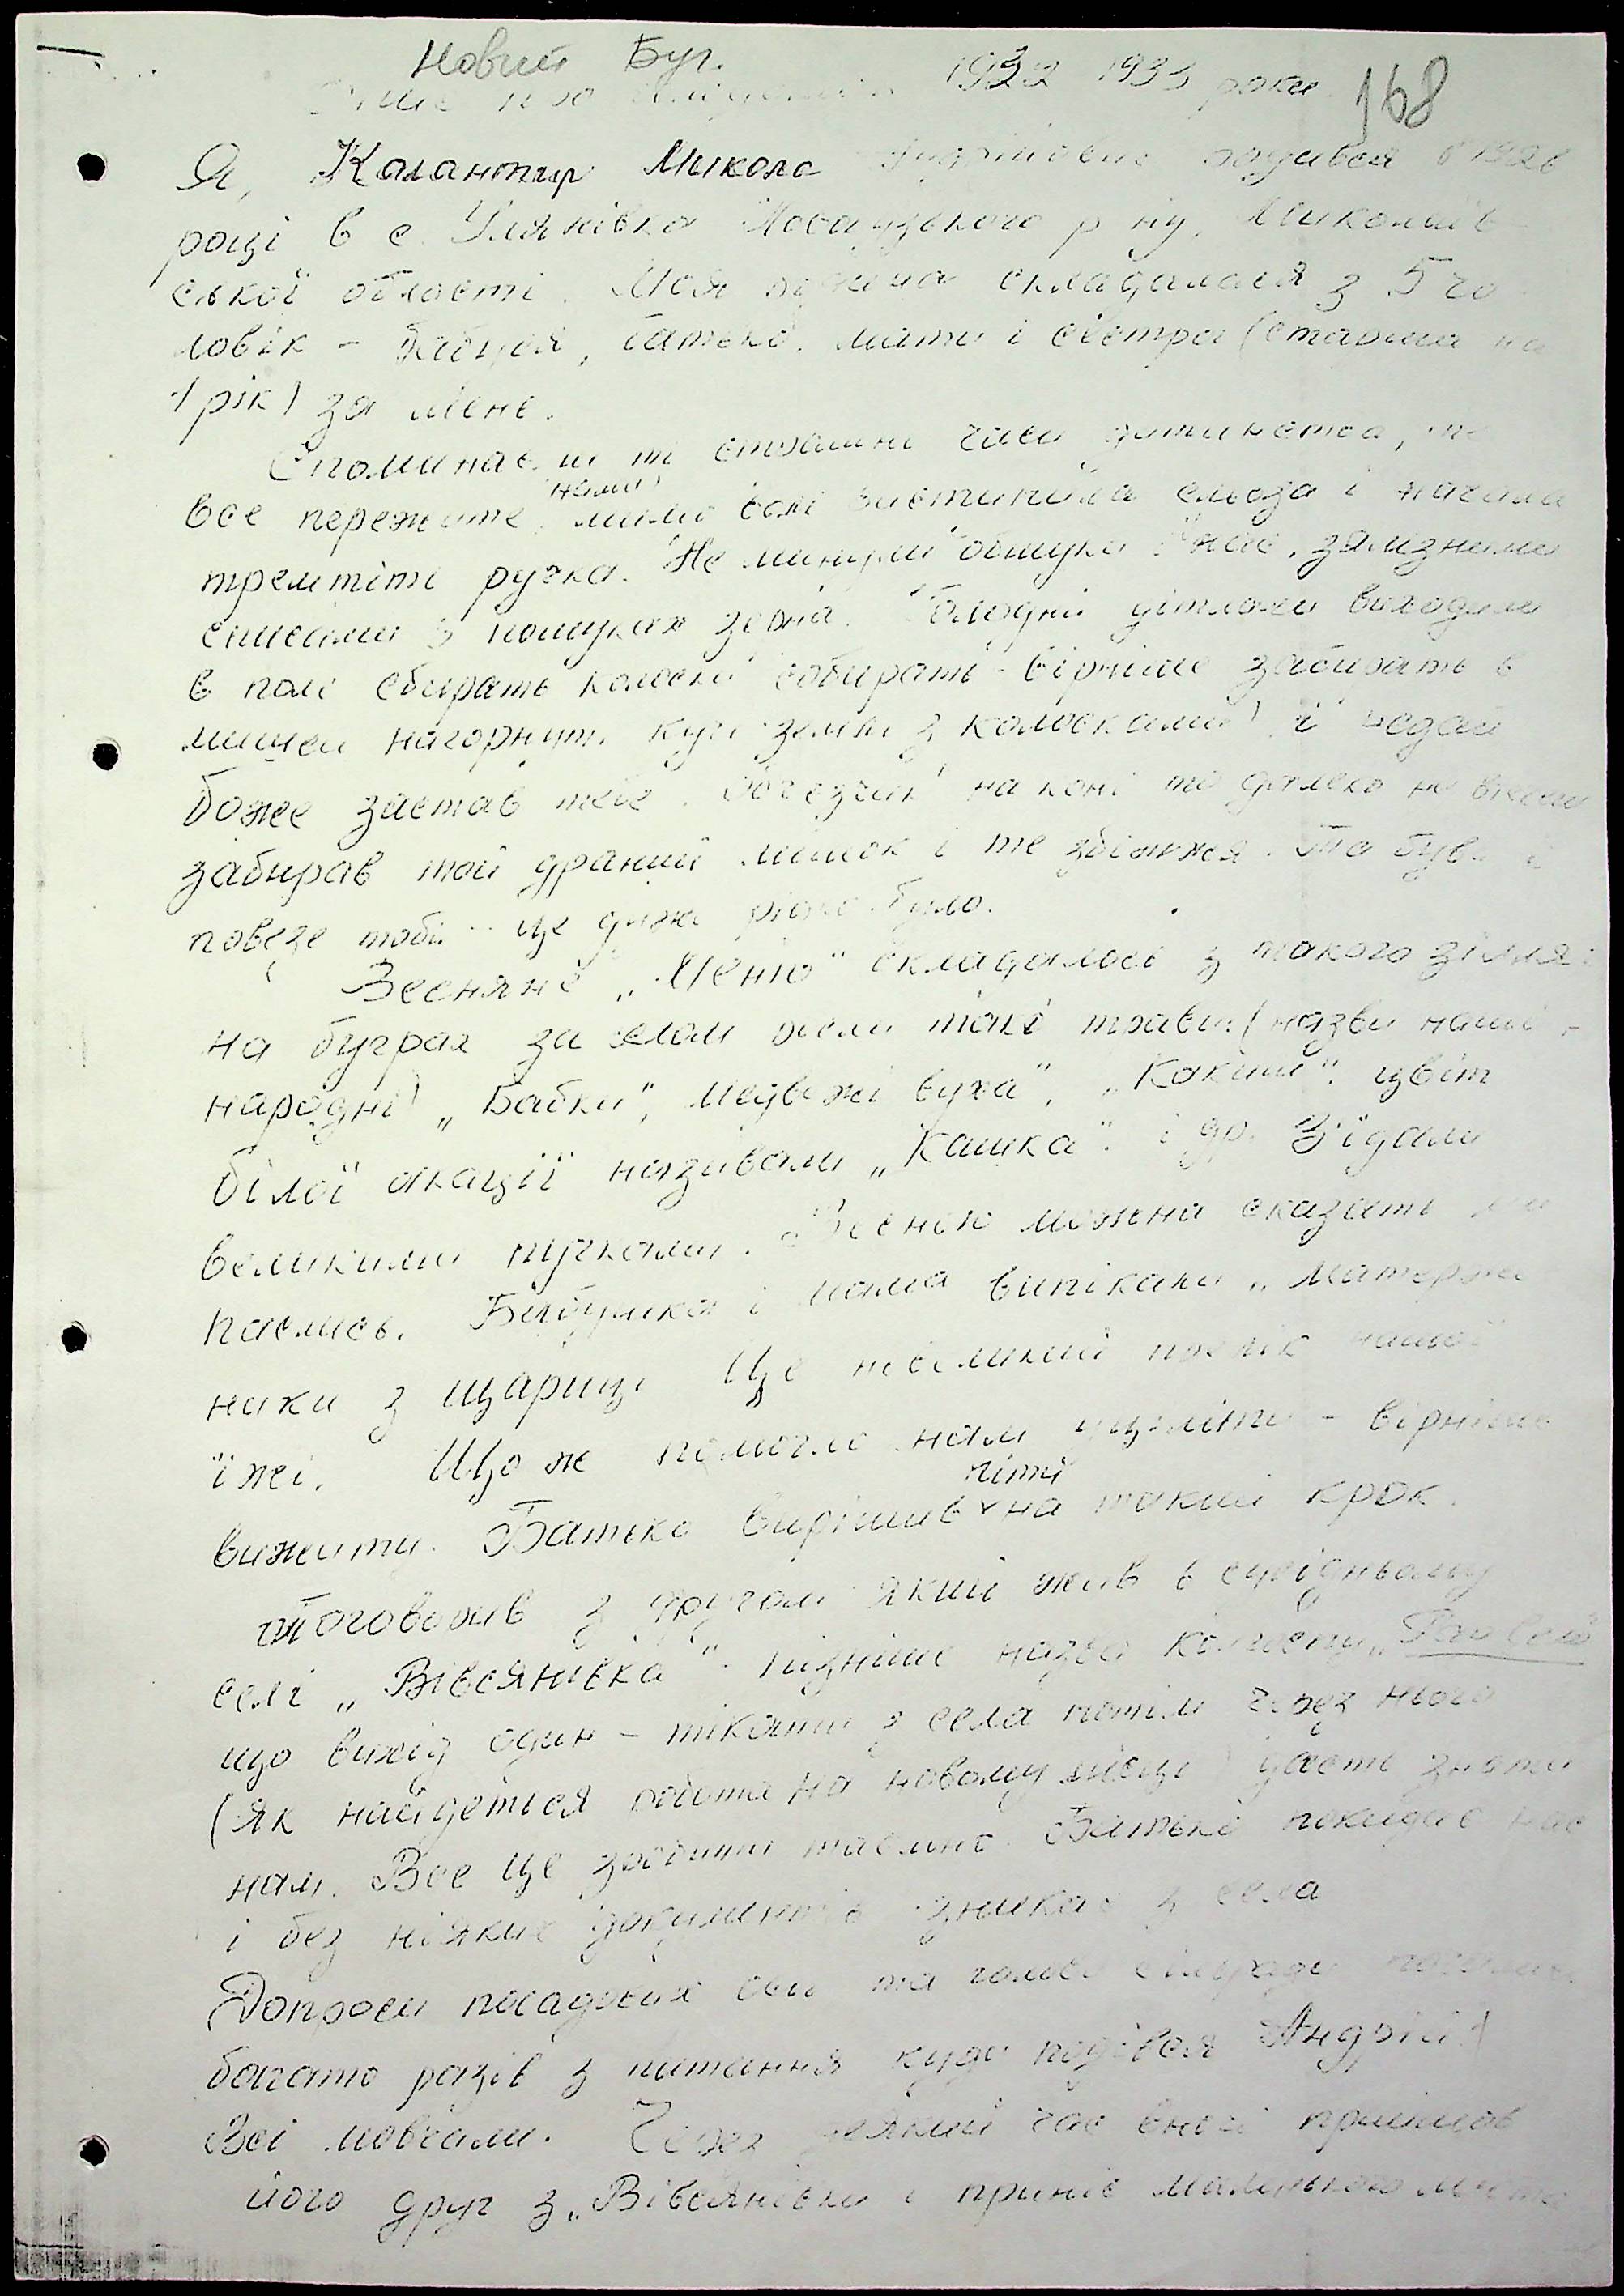 Новий Буг.
1932 1933 роки. 168
Я, Калантир Микола Андрійович родився в 1926
році в с. Улянівка Новобузького р ну, Миколаїв
ської області. Моя родина складалася з 5 чо
ловік - бабуся, батько, мати і сестра (старша на
1 рік) за мене.
Споминаєш ті страшні часи дитинства, те
все пережите нами, мимо волі сльоза і начала
тремтіти ручка. Не минули обшуки і нас, залізними
списами в пошуках зерна. Голодні дітлахи виходили
в поле сбирать колоски собирать - вірніше забирать в
мишей нагорнуті кучі землі з колосками) і недай
боже застав тебе на коні то далеко не
забирав той драний мішок і те збіжжя. Та буває
повезе тобі - це дуже рідко було.
Весняне „Меню" складалось з такого зілля:
на буграх за селом росли такі трави (назви наші -
народні) „Бабки", Медвежі вуха", „Кокиши". цвіт
білої акації називали „Кашка". і др. З'їдали
великими пучками. Весною можна сказать ми
паслись. Бабушка і мама випікали „Матержа
ники з щириці Це невеликий перелік нашої
їжі. Що ж помогло нам уціліти - вірніше
вижити. Батько вирішив піти на такий крок.
Поговорив з другом який жив в сусідньому
селі „Вівсянивка" - пізніше назва колгоспу
що вихід один - тікати з села потім через нього
(як найдеться робота на новому місці) дасть знати
нам. Все це зробити таємно. Батько покидає нас
і без ніяких документів зникає з села
(Допроси посадових осіб та голови сільради
багато разів з питання куди подівся Андрій?)
Всі мовчали. Через деякий час вночі прийшов
його друг з „Вівсянівки і приніс маленького